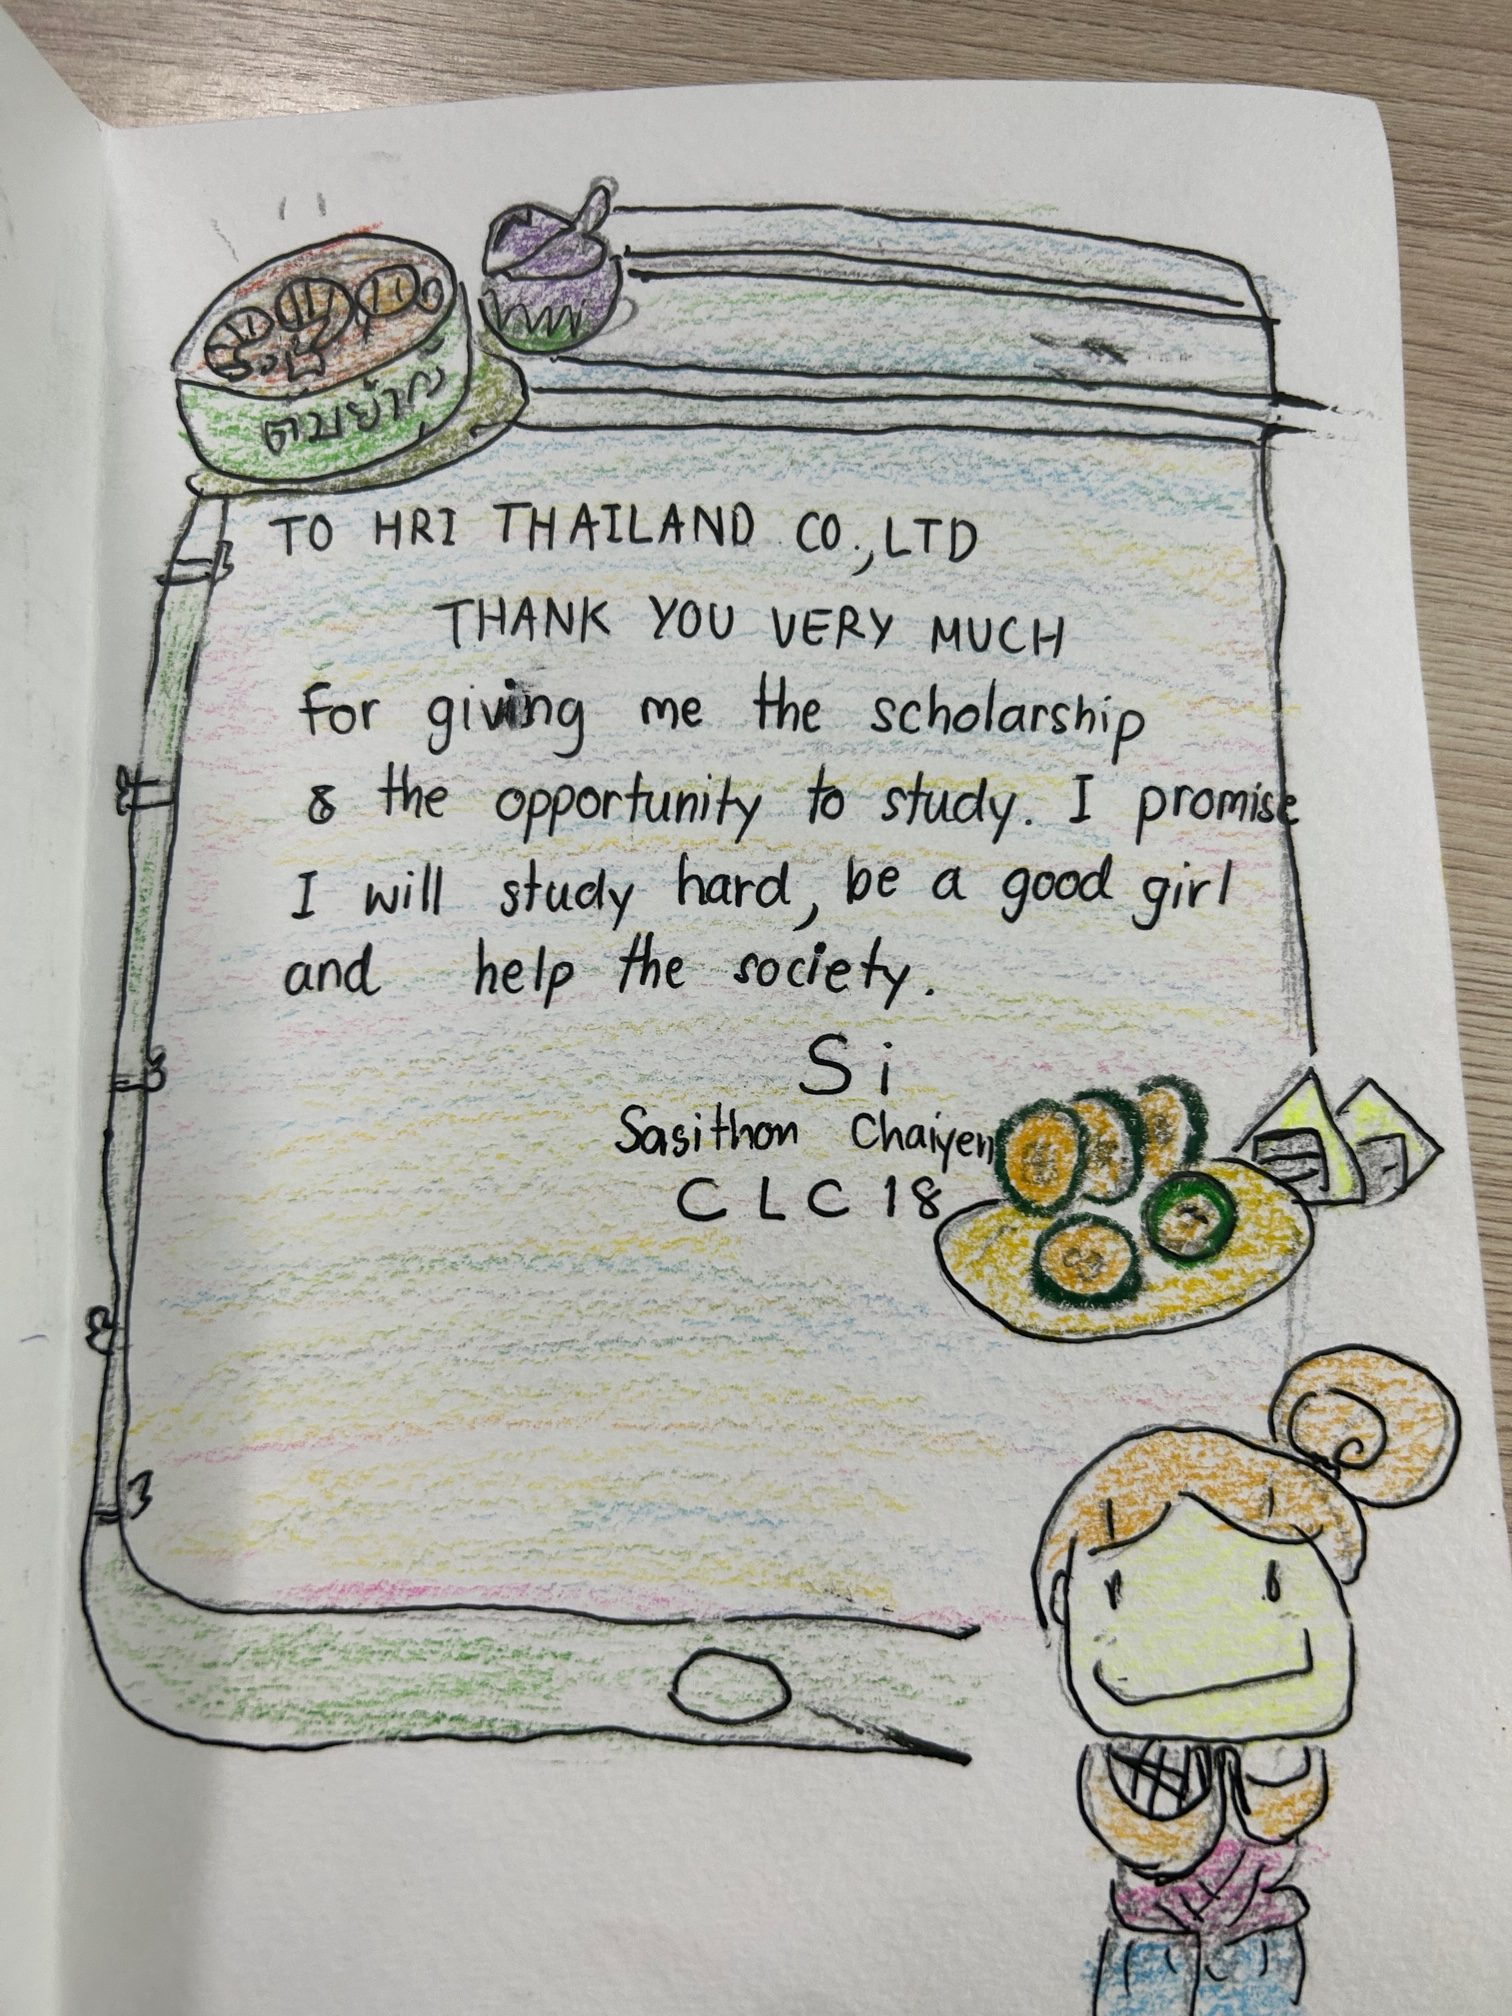 ต้มยำกุ้ง
TO HRI THAILAND CO.,LTD
THANK YOU VERY MUCH
for giving me the scholarship
& the opportunity to study. I promise
I will study hard, be a good girl
and help the society.
Si
Sasithon Chaiyen
CLC 18